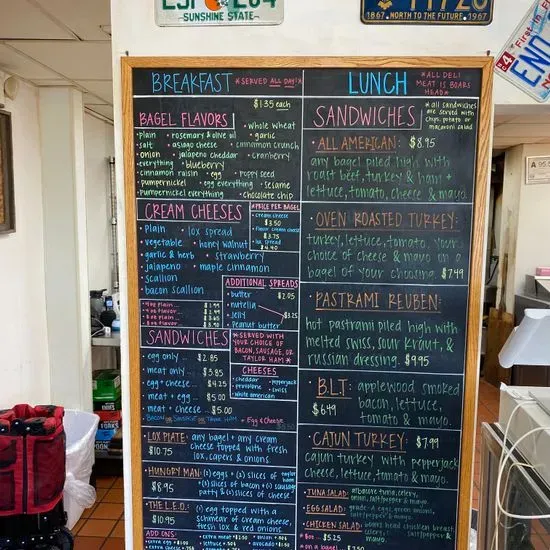 SUNSHINE STATE
1867 NORTH TO THE FUTURE 1967
BREAKFAST *SERVED ALL DAY!*
$1.35 each
BAGEL FLAVORS
• plain • rosemary & olive oil • whole wheat
• salt • asiago cheese • garlic
• onion • jalapeno cheddar • cinnamon crunch
• everything • blueberry • cranberry
• cinnamon raisin • egg • poppy seed
• pumpernickel • egg everything • sesame
• pumpernickel everything • chocolate chip
CREAM CHEESES
• plain • lox spread
• vegetable • honey walnut
• garlic & herb • strawberry
• jalapeno • maple cinnamon
• scallion
• bacon scallion
*PRICE PER BAGEL
• cream cheese
$2.50
• flavor cream cheese
$3.75
• lox spread
$4.40
ADDITIONAL SPREADS
• butter $2.05
• nutella
• jelly $3.25
• peanut butter
SANDWICHES
egg only ... $2.85
meat only ... $3.85
egg + cheese ... $4.25
meat + egg ... $5.00
meat + cheese ... $5.00
BACON OR SAUSAGE OR TAYLOR HAM + Egg & Cheese
*SERVED WITH
YOUR CHOICE OF
BACON, SAUSAGE, OR
TAYLOR HAM*
CHEESES
• cheddar • pepperjack
• provolone • swiss
• white american
LOX PLATE: any bagel + any cream
$10.75 cheese topped with fresh
lox, capers & onions
HUNGRY MAN: (2) eggs + (2) slices of taylor ham
$8.95 (2) slices of bacon + (1) sausage
patty & (2) slices of cheese
THE L.E.O.: (1) egg topped with a
$10.95 schmear of cream cheese,
fresh lox & red onions
ADD ONS:
LUNCH *ALL DELI
MEAT IS BOARS
HEAD*
SANDWICHES *all sandwiches
are served with
chips, potato or
macaroni salad
• ALL AMERICAN: $8.95
any bagel piled high with
roast beef, turkey & ham +
lettuce, tomato, cheese & mayo
• OVEN ROASTED TURKEY:
turkey, lettuce, tomato, your
choice of cheese & mayo on a
bagel of your choosing. $7.49
• PASTRAMI REUBEN:
hot pastrami piled high with
melted swiss, sour kraut, &
russian dressing. $9.95
• B.L.T: applewood smoked
$6.49 bacon, lettuce,
tomato & mayo.
• CAJUN TURKEY: $7.99
cajun turkey with pepperjack
cheese, lettuce, tomato & mayo.
• TUNA SALAD: albacore tuna, celery,
onion, salt, pepper & mayo.
• EGG SALAD: grade A eggs, green onions,
salt, pepper & mayo.
• CHICKEN SALAD: boars head chicken breast,
celery, salt, pepper & mayo.
• 8oz ... $5.25
• on a bagel